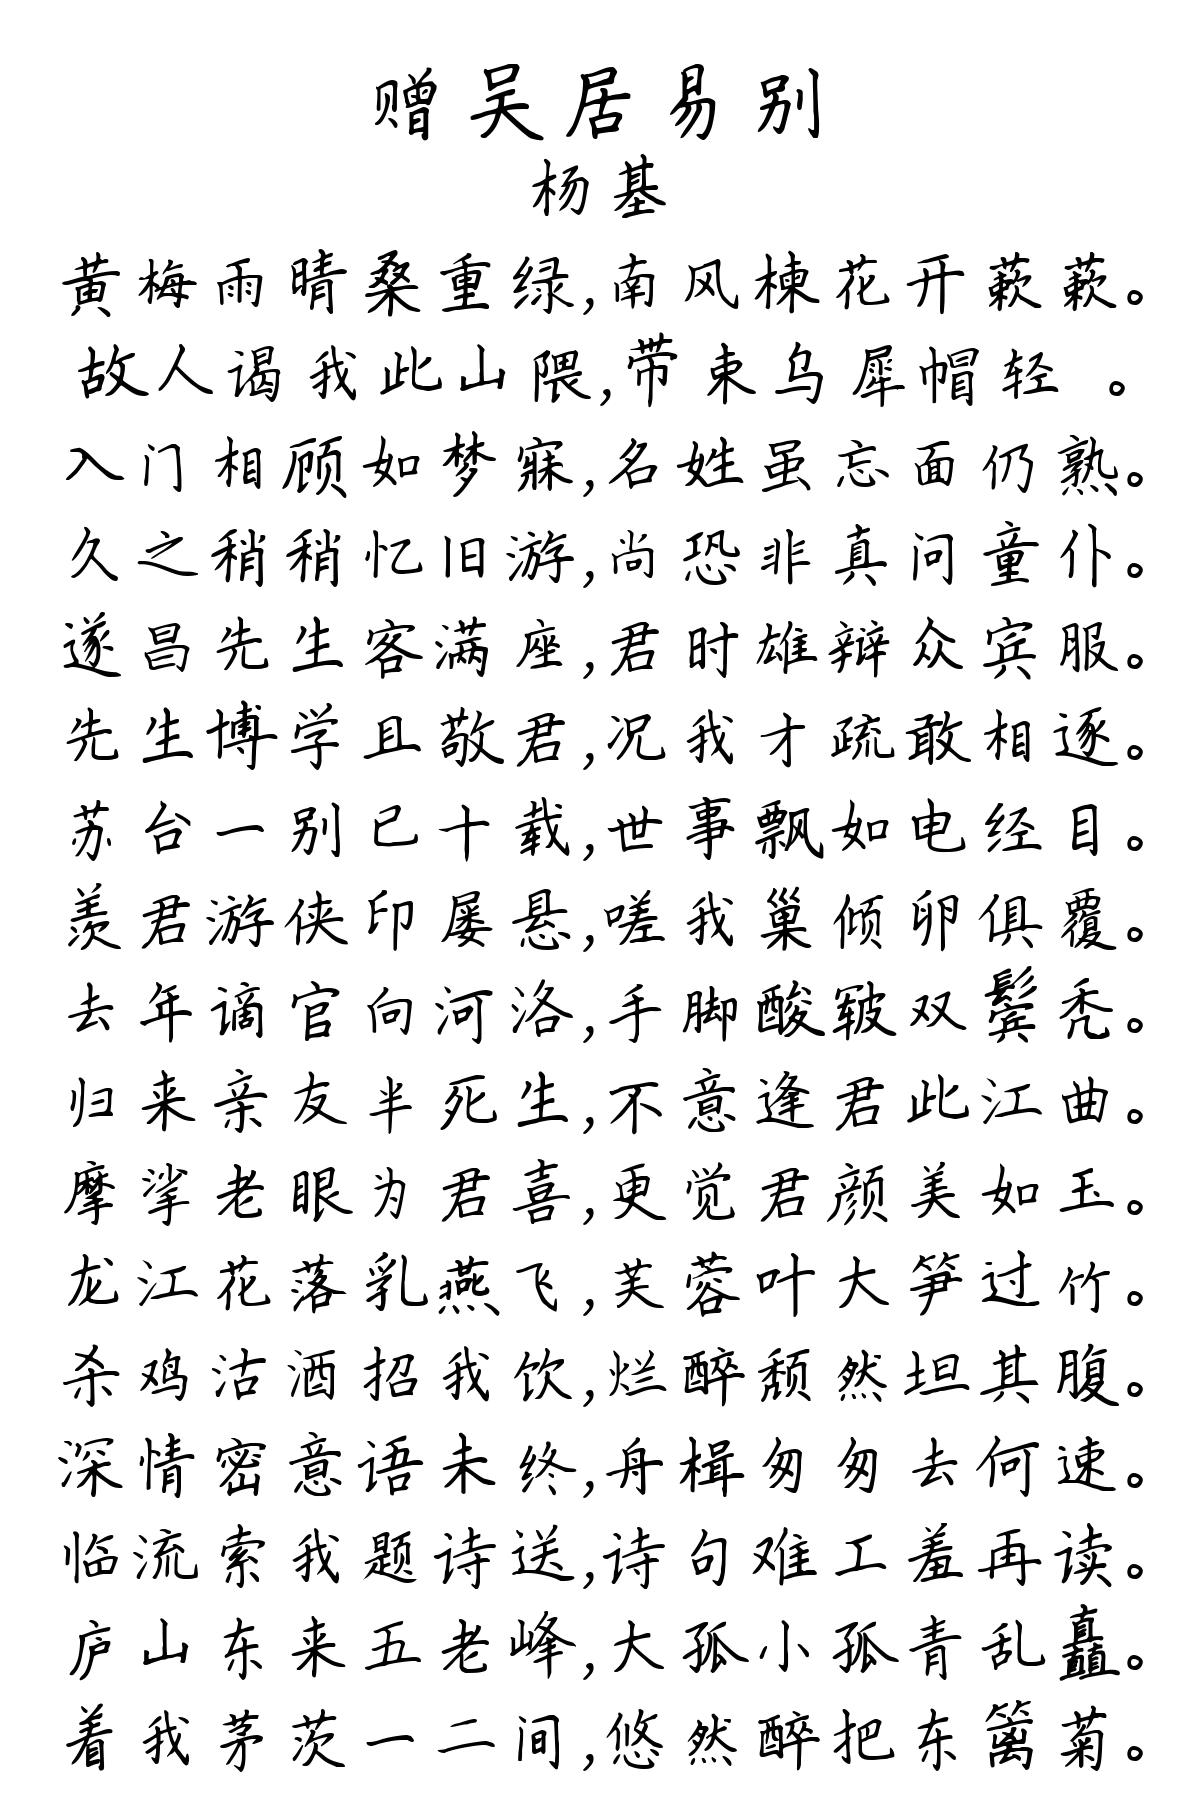 赠吴居易别
杨基
黄梅雨晴桑重绿,南风楝花开蔌蔌。
故人谒我此山隈,带束乌犀帽轻 。
入门相顾如梦寐,名姓虽忘面仍熟。
久之稍稍忆旧游,尚恐非真问童仆。
遂昌先生客满座,君时雄辩众宾服。
先生博学且敬君,况我才疏敢相逐。
苏台一别已十载,世事飘如电经目。
羡君游侠印屡悬,嗟我巢倾卵俱覆。
去年谪官向河洛,手脚酸皲双鬓秃。
归来亲友半死生,不意逢君此江曲。
摩挲老眼为君喜,更觉君颜美如玉。
龙江花落乳燕飞,芙蓉叶大笋过竹。
杀鸡沽酒招我饮,烂醉颓然坦其腹。
深情密意语未终,舟楫匆匆去何速。
临流索我题诗送,诗句难工羞再读。
庐山东来五老峰,大孤小孤青乱矗。
着我茅茨一二间,悠然醉把东篱菊。